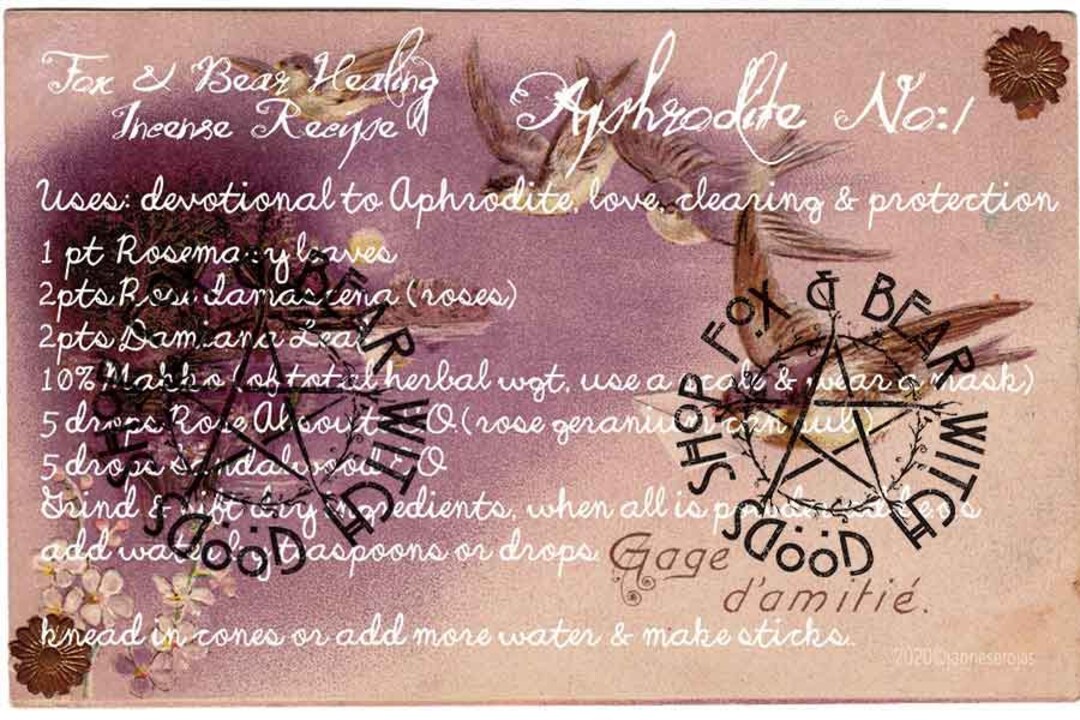 Fox & Bear Healing
Incense Recipe
Aphrodite No:1
Uses: devotional to Aphrodite, love, clearing & protection
1 pt Rosemary leaves
2pts Rosa damascena (roses)
2pts Damiana Leaf
10% Makko (of total herbal wgt, use a scale & wear a mask)
5 drops Rose Absolute E/O (rose geranium can sub)
5 drops sandalwood E/O
Grind & sift dry ingredients, when all is powdered
add water by teaspoons or drops.
knead in cones or add more water & make sticks.
SHOP FOX & BEAR WITCH GÖÖDS
SHOP FOX & BEAR WITCH GÖÖDS
Gage
d'amitié.
2020©janneserojas